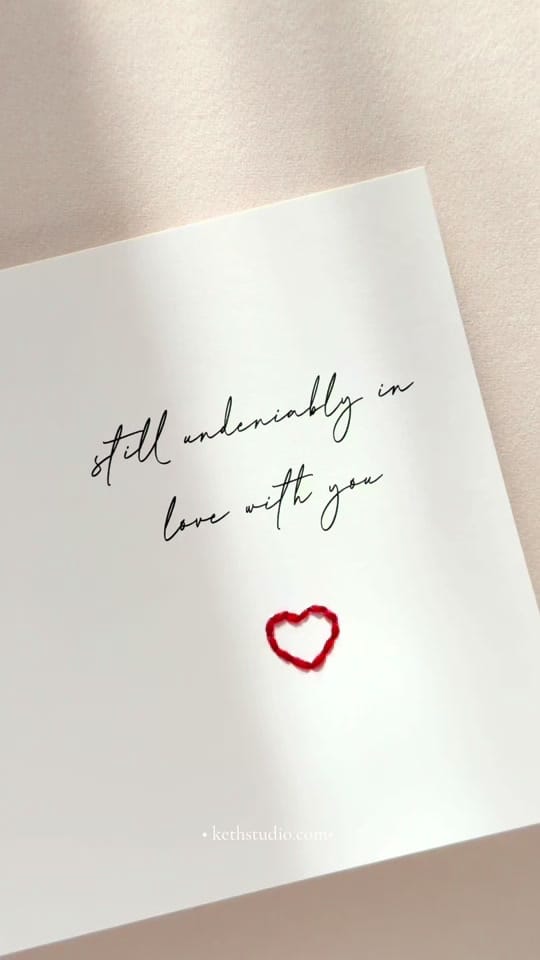 still undeniably in
love with you
• kethstudio.com•